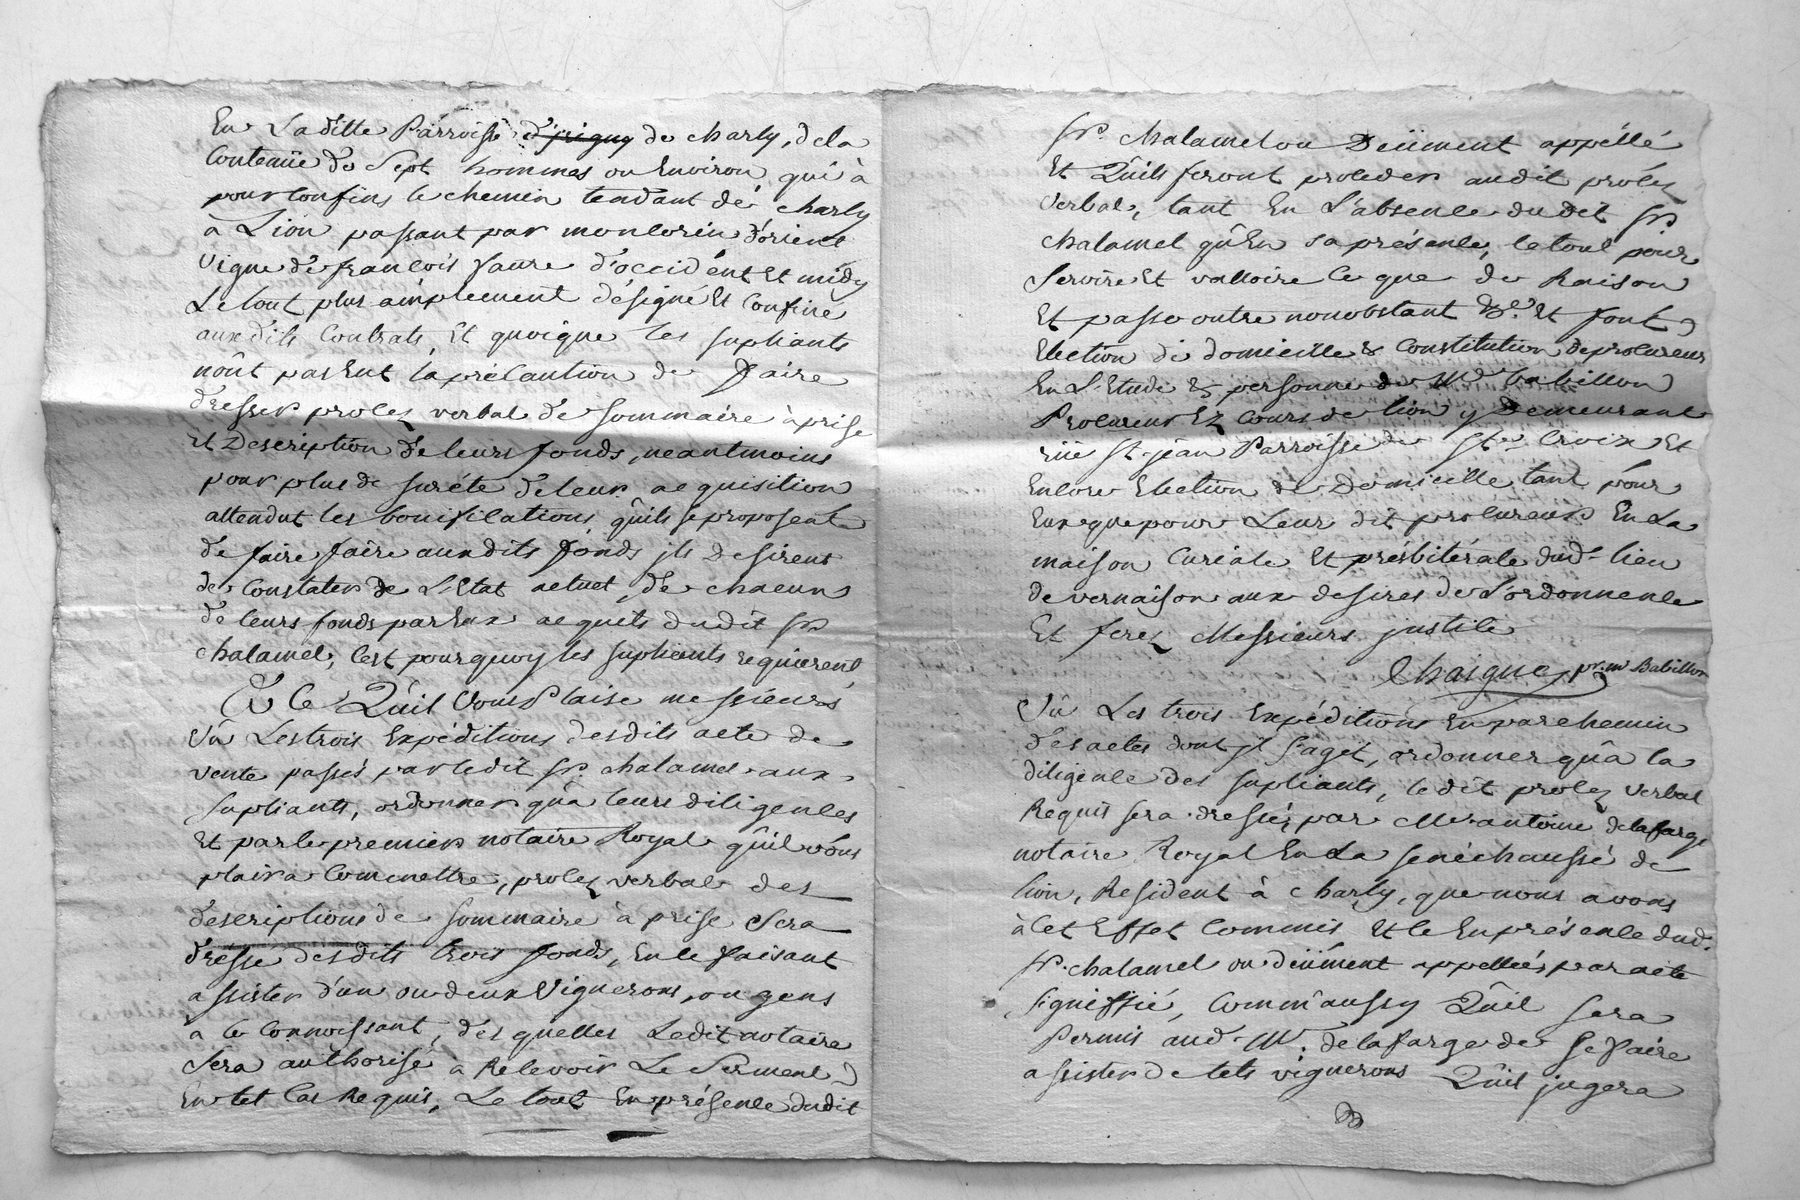 En Laditte Parroisse d'jrigny de charly, dela
Contenüe de Sept hommes ou Environ qui à
pour confins le chemin tendant de charly
à Lion passant par montorin d'orient
vigne de françois faure d'occident et midy
Le tout plus amplement désigné Et Confiné
auxdits Contrats, Et quoique les supliants
n'ônt pas Eut la précaution de faire
dresser procez verbal de Sommaire àprise
et Description de leurs fonds, neantmoins
pour plus de sureté de leur acquisition
attendut les bonifications qûils se proposent
de faire faire auxdits fonds jls Desirent
de Constater de L'Etat actuel, de chacuns
de leurs fonds par Eux acquits dudit Sr.
chalamel, Cest pourquoy les supliants requierent,
À Ce Qûil Vous Plaise messieurs
Vû Les trois Expéditions desdits acte de
vente passés par ledit Sr. chalamel aux
supliants, ordonner qûà leurs diligences
Et par le premier notaire Royal qûil vous
plaira Commettre, procez verbal des
descriptions de Sommaire à prise Sera
dréssé desdits trois fonds, En le faisant
assister d'un ou deux Vignerons, ou gens
à ce Connoissant, désquelles Ledit notaire
Séra authorisé à Recevoir Le Serment
En tel Cas Requis, Le tout En présence dudit
Sr. chalamel ou Deüment appéllé
Et Qûils feront proceder audit procez
verbal, tant En L'absence dudit Sr.
chalamel qû'En sa présence, le tout pour
Servire Et valloire Ce que de Raison
Et passe outre nonobstant &c. Et font
Election de domicille & Constitution de procureur
En L'Etude & personne de Me babillon
Procureur Ez Cours de lion y Demeurant
rüe St. jean Parroisse de Ste. Croix Et
Encore Election de Domicille tant pour
Eux que pour Leur dit procureur En La
maison Curiale Et présbitérale dud. lieu
de vernaison aux desires de L'ordonnence
Et ferez Messieurs justice
Chaigne pr. me Babillon
Vû Les trois Expéditions En parchemin
des actes dont jl s'agit, ordonner qûà la
diligence des supliants, le dit procez verbal
Requis sera dressé, par Me. antoine delafarge
notaire Royal En La senéchaussé de
lion, Résident à charly, que nous avons
à Cet Effet Commis Et le En présence dud.
Sr. chalamel ou deüment appellées par acte
signiffié, Comm'aussy Qûil sera
Permis aud. Me. delafarge de se faire
assister de tels vignerons Qûil jugera